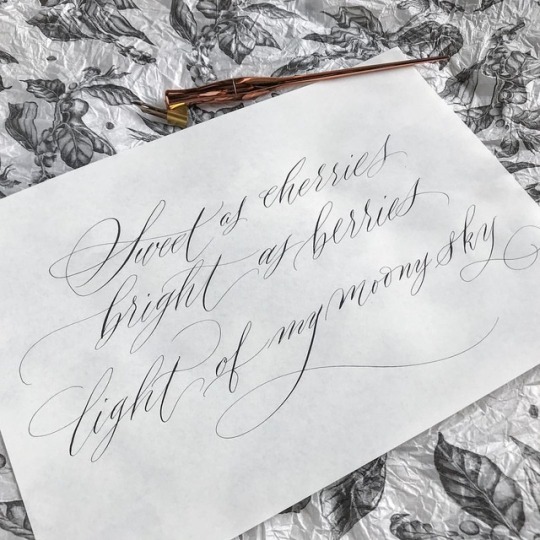 Sweet as cherries
bright as berries
light of my moony sky